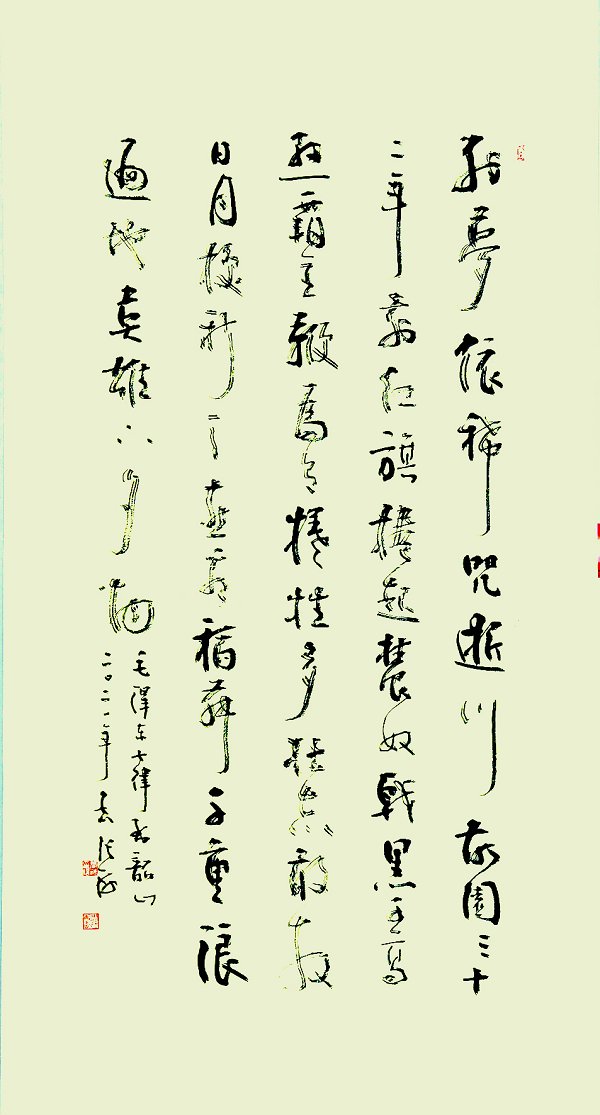 别夢依稀咒逝川故園三十
二年前红旗捲起農奴戟黑手高
悬霸主鞭為有犧牲多壯志敢教
日月換新天喜看稻菽千重浪
遍地英雄下夕烟
毛澤东七律到韶山
二〇二一年